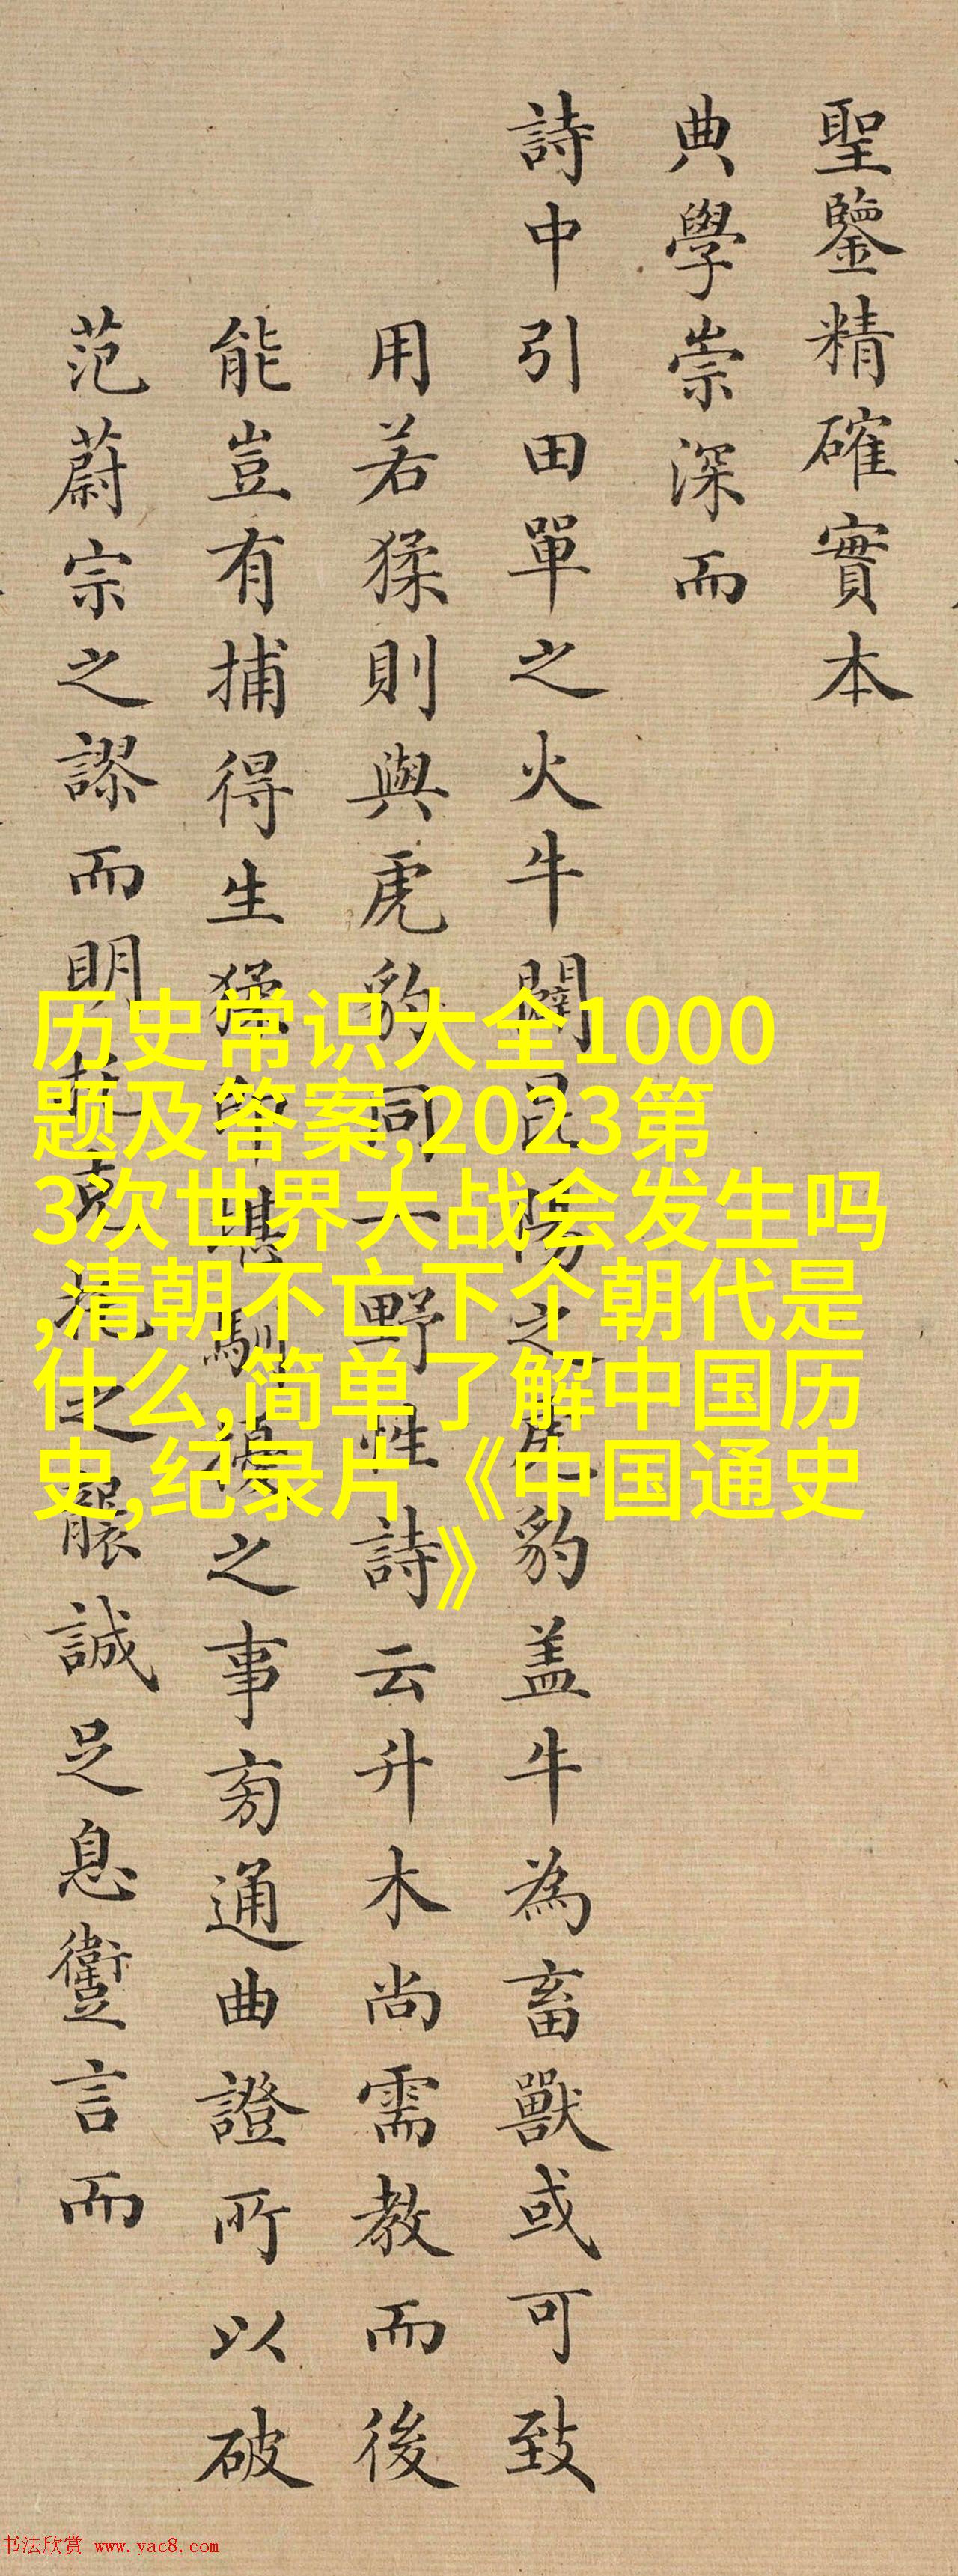 聖鑒精確實本
典學崇深而
詩中引田單之火牛闢昆陽之虎豹盖牛為畜獸或可致
用若猱則與虎豹同一野性詩云升木尚需教而後
能豈有捕得生猱即堪馴擾之事旁通曲證所以破
范蔚宗之謬而明之襲誠足息讆言而
历史常识大全1000
题及答案,2023第
3次世界大战会发生吗
,清朝不亡下个朝代是
什么,简单了解中国历
史,纪录片《中国通史
》
书法欣赏 www.yac8.com